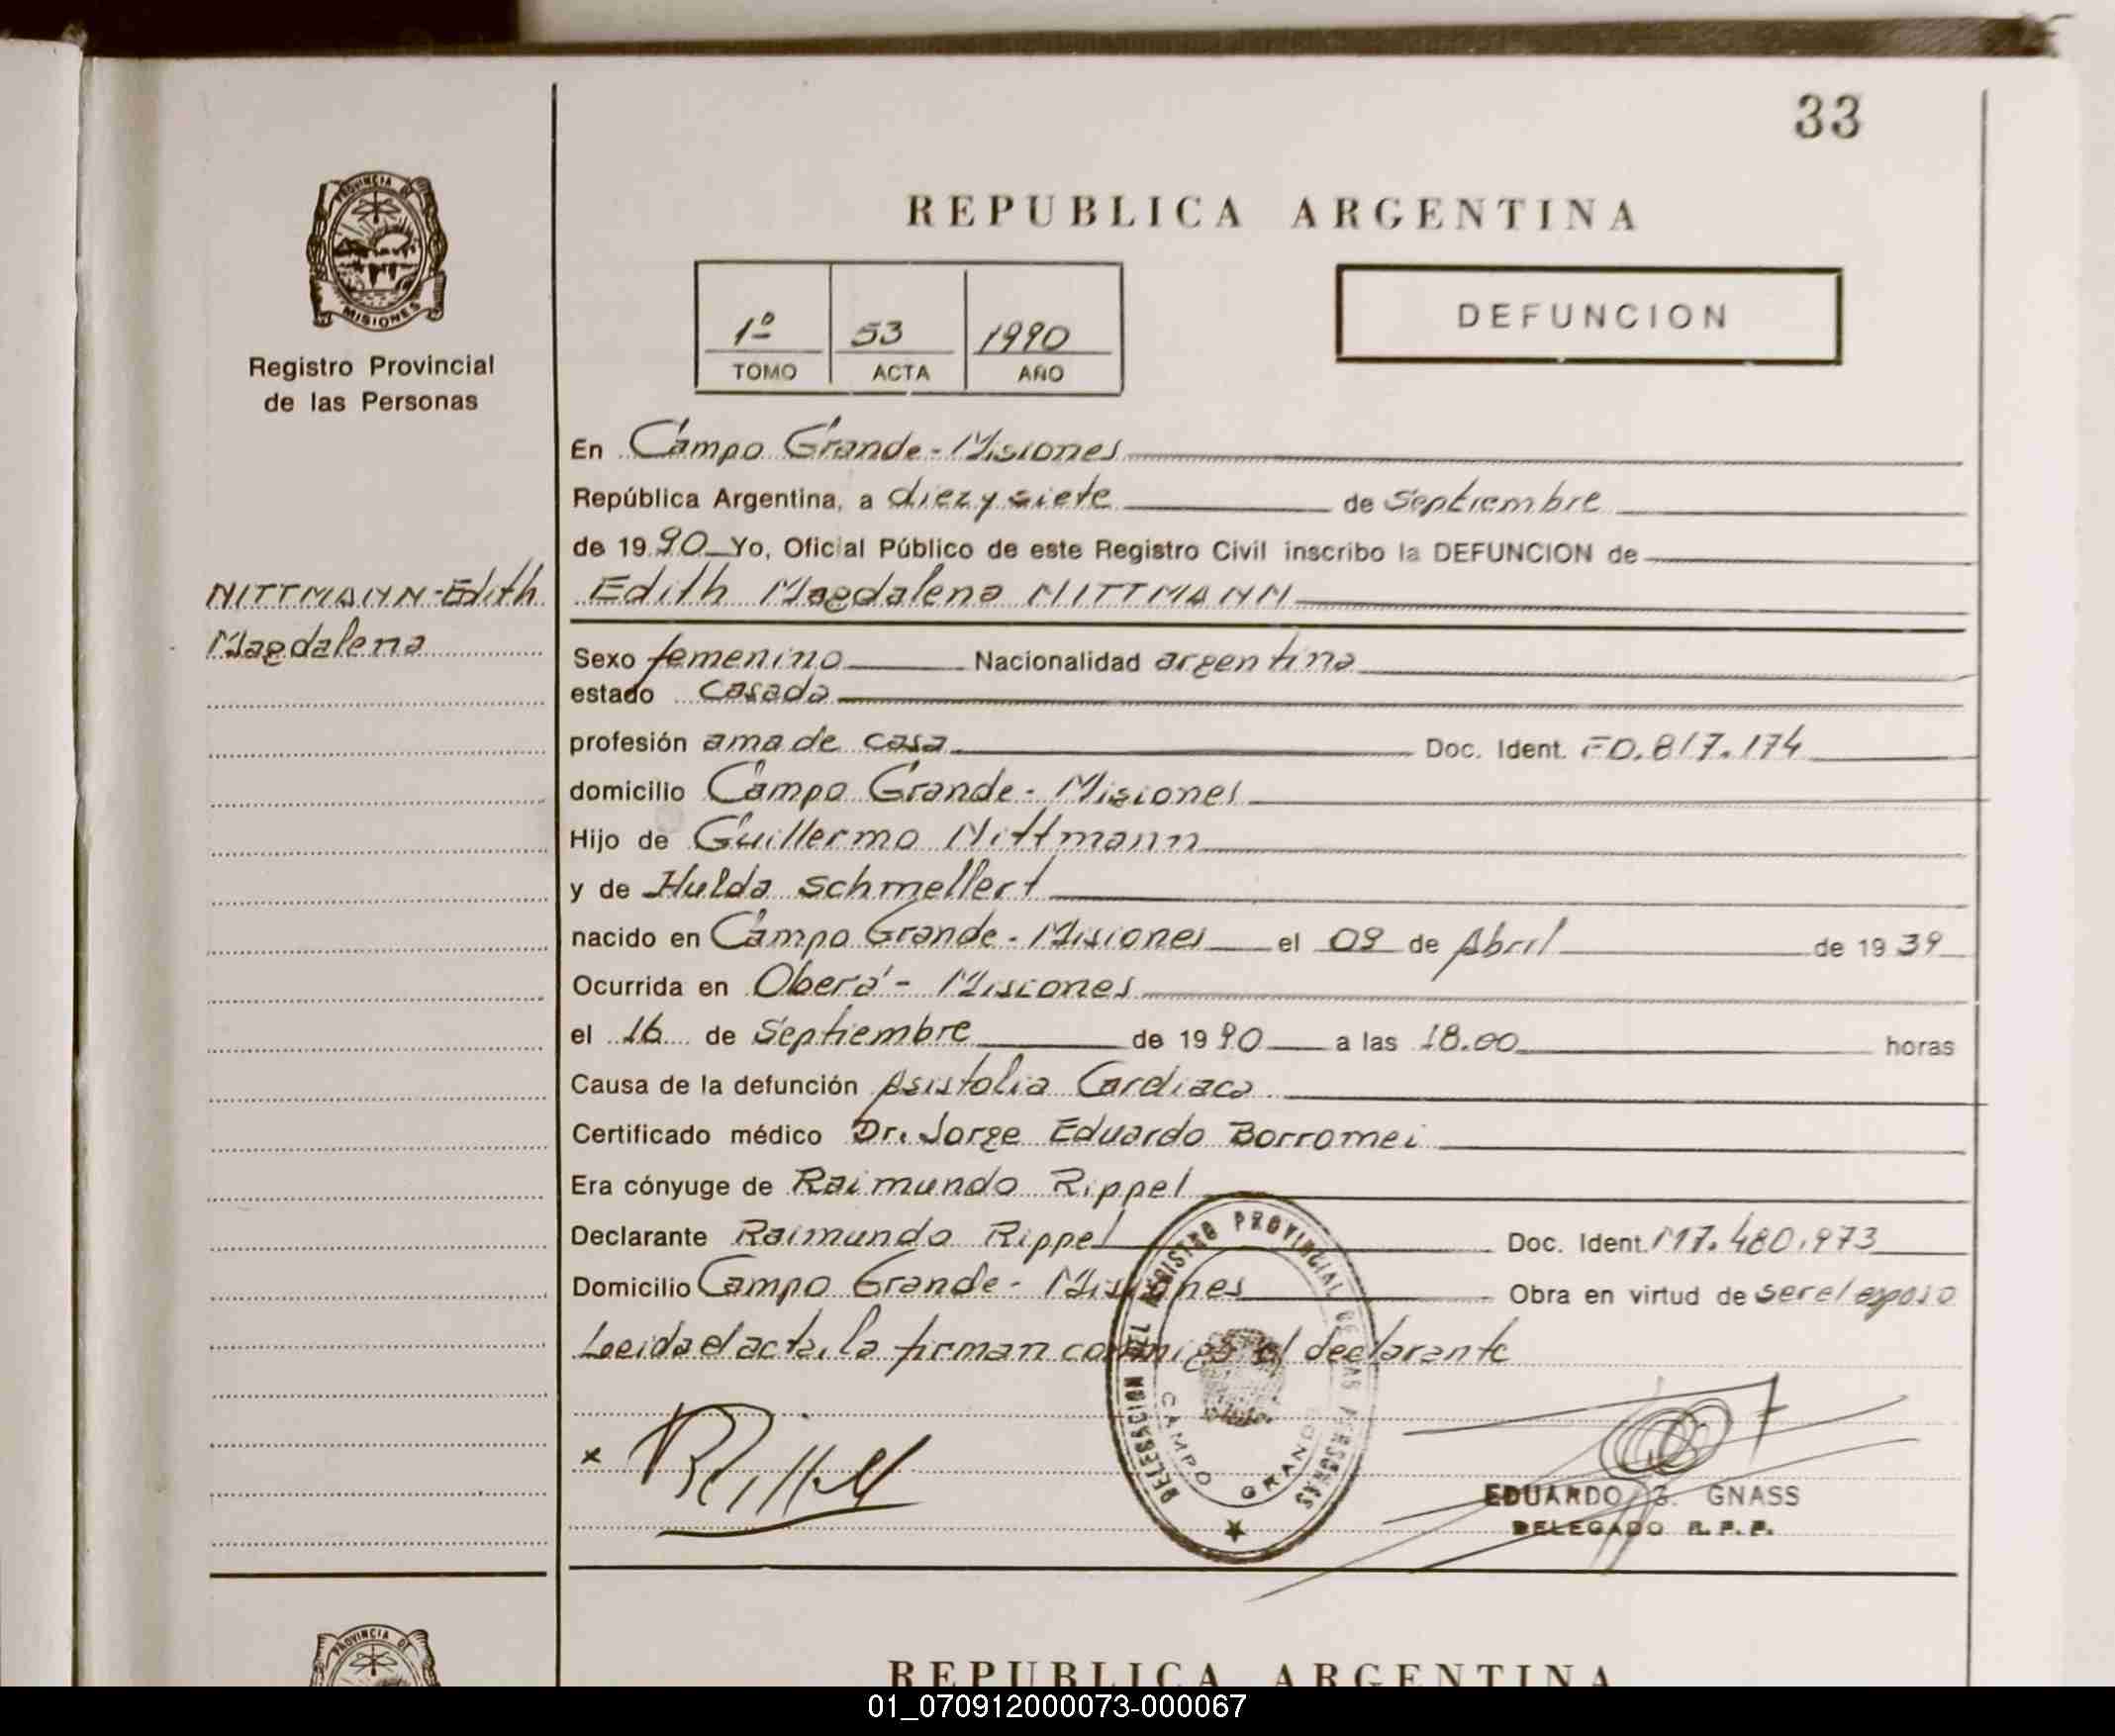 33
PROVINCIA DE
MISIONES
Registro Provincial
de las Personas
REPUBLICA ARGENTINA
1º 53 1990
TOMO ACTA AÑO
DEFUNCION
En Campo Grande - Misiones
República Argentina, a diez y siete de Septiembre
de 1990 Yo, Oficial Público de este Registro Civil inscribo la DEFUNCION de
NITTMANN - Edith
Magdalena
Edith Magdalena NITTMANN
Sexo femenino Nacionalidad argentina
estado casada
profesión ama de casa Doc. Ident. F0.817.174
domicilio Campo Grande - Misiones
Hijo de Guillermo Nittmann
y de Hulda Schmellert
nacido en Campo Grande - Misiones el 09 de Abril de 1939
Ocurrida en Oberá - Misiones
el 16 de Septiembre de 1990 a las 18.00 horas
Causa de la defunción Asistolia Cardiaca
Certificado médico Dr. Jorge Eduardo Borromei
Era cónyuge de Raimundo Rippel
Declarante Raimundo Rippel Doc. Ident. M7.480.973
Domicilio Campo Grande - Misiones Obra en virtud de ser el esposo
Leida el acta, la firman conmigo el declarante
DELEGACION DEL REGISTRO PROVINCIAL DE LAS PERSONAS
CAMPO GRANDE
x
EDUARDO G. GNASS
DELEGADO R.P.P.
PROVINCIA DE
REPUBLICA ARGENTINA
01_070912000073-000067